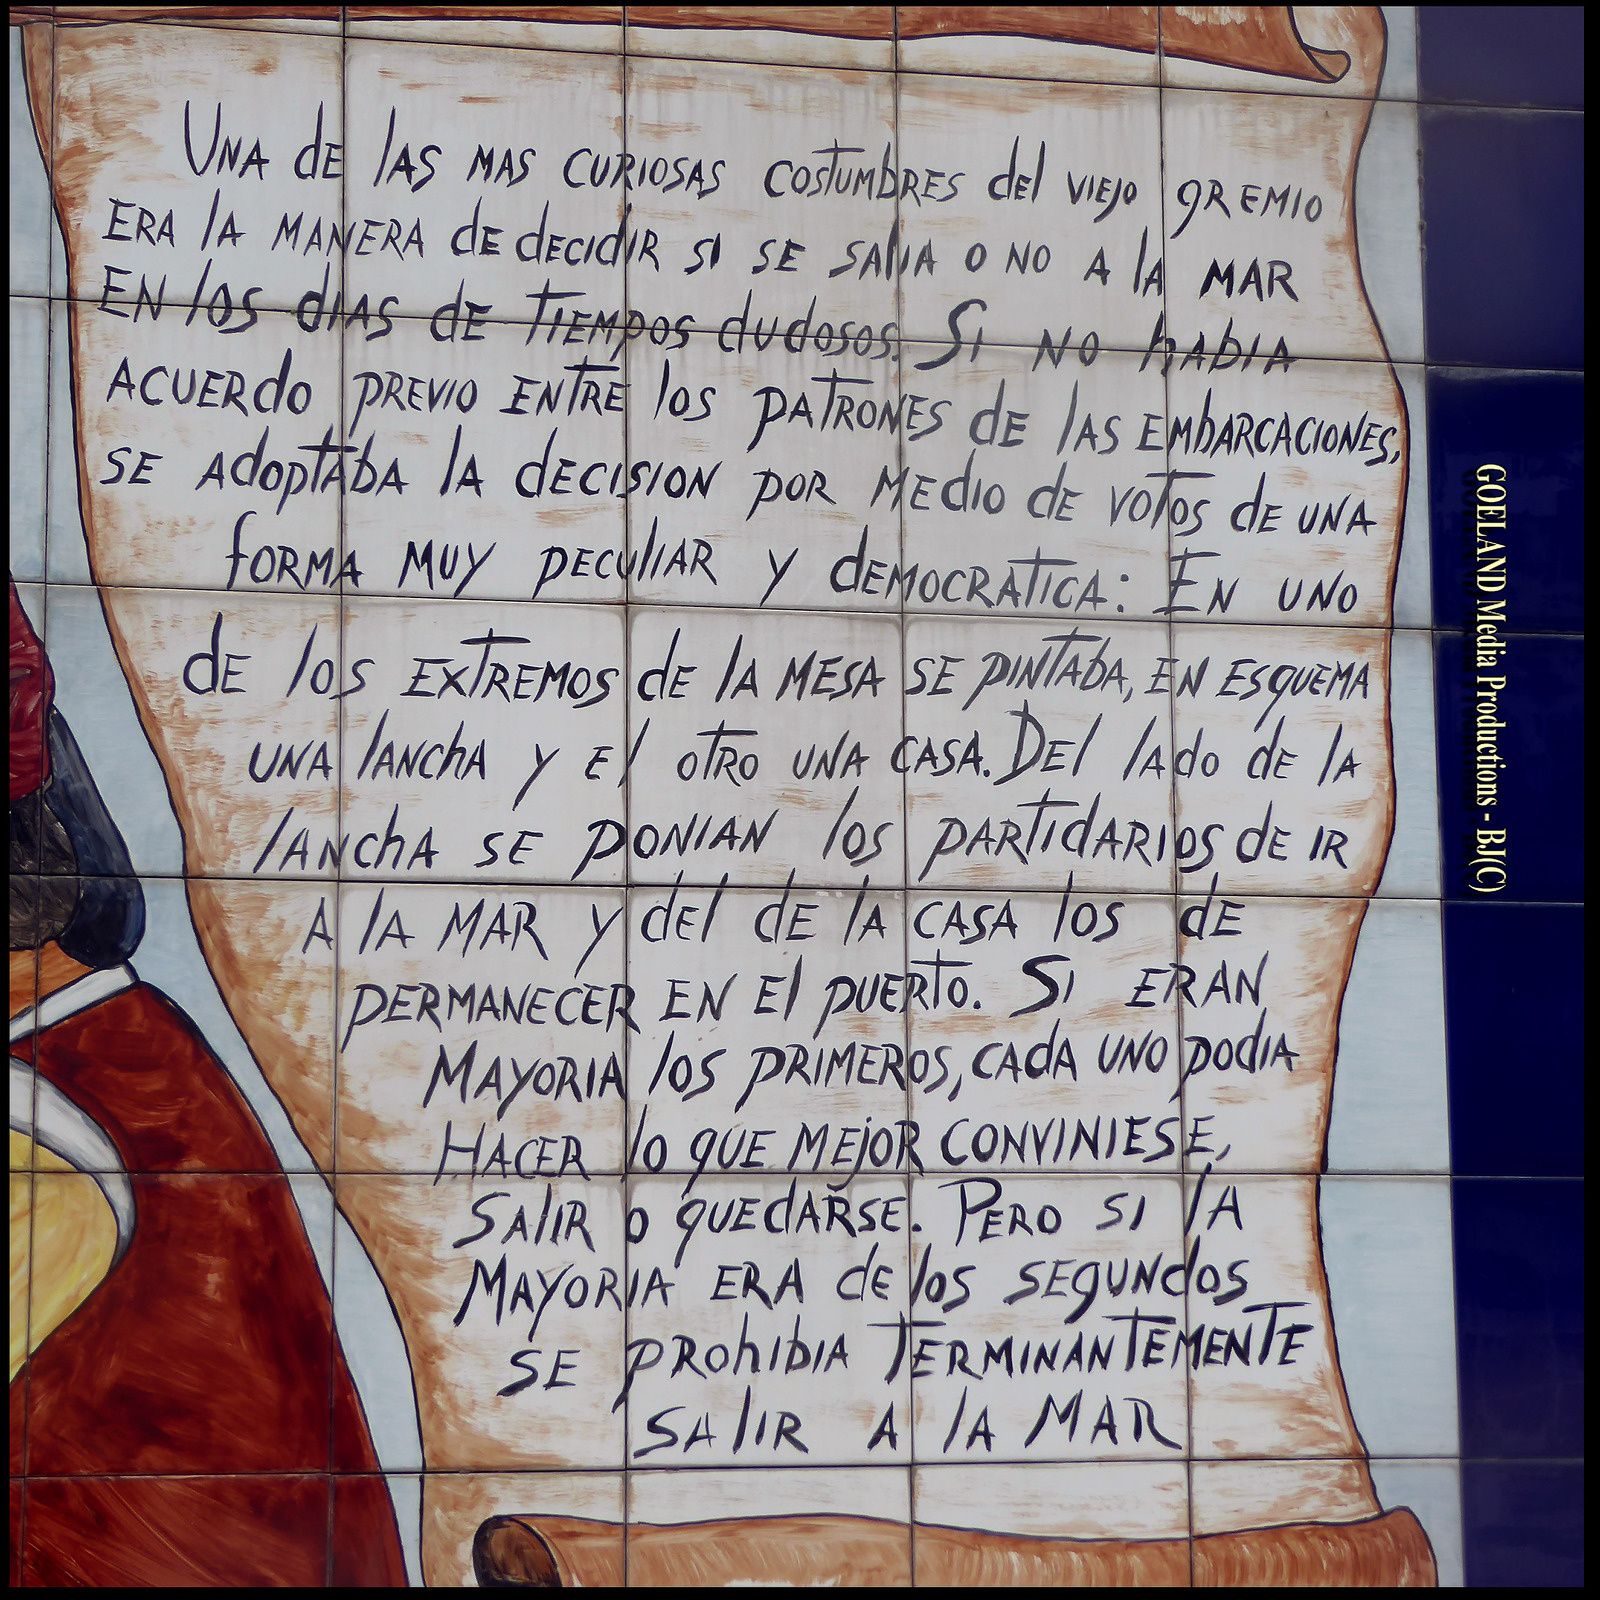 UNA DE LAS MAS CURIOSAS COSTUMBRES DEL VIEJO GREMIO
ERA LA MANERA DE DECIDIR SI SE SALIA O NO A LA MAR
EN LOS DIAS DE TIEMPOS DUDOSOS. SI NO HABIA
ACUERDO PREVIO ENTRE LOS PATRONES DE LAS EMBARCACIONES,
SE ADOPTABA LA DECISION POR MEDIO DE VOTOS DE UNA
FORMA MUY PECULIAR Y DEMOCRATICA: EN UNO
DE LOS EXTREMOS DE LA MESA SE PINTABA, EN ESQUEMA
UNA LANCHA Y EL OTRO UNA CASA. DEL LADO DE LA
LANCHA SE PONIAN LOS PARTIDARIOS DE IR
A LA MAR Y DEL DE LA CASA LOS DE
PERMANECER EN EL PUERTO. SI ERAN
MAYORIA LOS PRIMEROS, CADA UNO PODIA
HACER LO QUE MEJOR CONVINIESE,
SALIR O QUEDARSE. PERO SI LA
MAYORIA ERA DE LOS SEGUNDOS
SE PROHIBIA TERMINANTEMENTE
SALIR A LA MAR
GOELAND Media Productions - BJ(C)